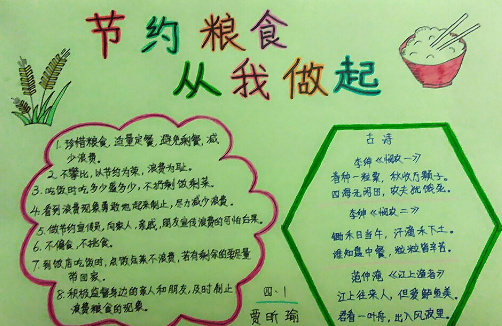 节约粮食
从我做起
1. 珍惜粮食，适量定餐，避免剩餐，减
少浪费。
2. 不攀比，以节约为荣，浪费为耻。
3. 吃饭时吃多少盛多少，不扔剩饭剩菜。
4. 看到浪费现象勇敢地起来制止，尽力减少浪费。
5. 做节约宣传员，向家人，亲戚，朋友宣传浪费的可怕后果。
6. 不偏食，不挑食。
7. 到饭店吃饭时，点饭点菜不浪费，若有剩余的尽量
带回家。
8. 积极监督身边的家人和朋友，及时制止
浪费粮食的现象。
古诗
李绅《悯农一》
春种一粒粟，秋收万颗子。
四海无闲田，农夫犹饿死。
李绅《悯农二》
锄禾日当午，汗滴禾下土。
谁知盘中餐，粒粒皆辛苦。
范仲淹《江上渔者》
江上往来人，但爱鲈鱼美。
君看一叶舟，出入风波里。
四.1
贾昕瑜